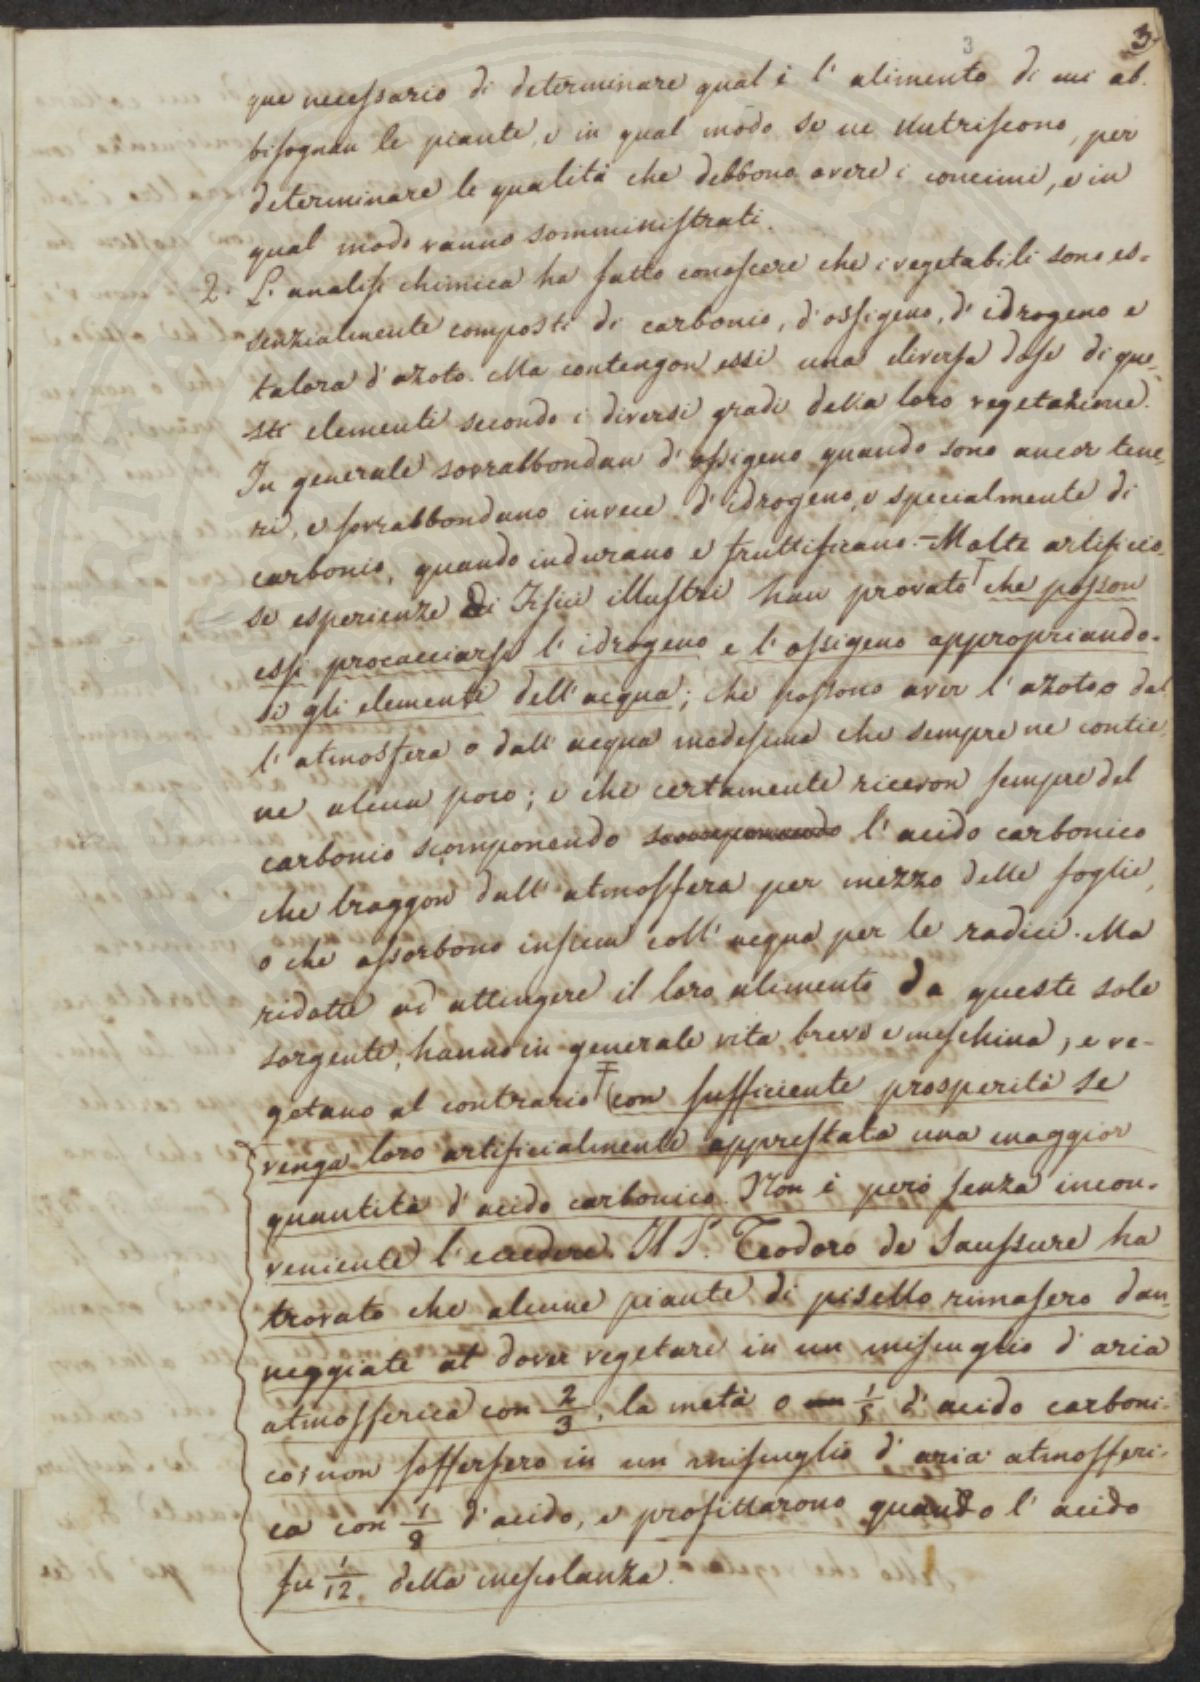 3
3.
que necessario di determinare qual è l'alimento di cui ab-
bisognan le piante, e in qual modo se ne nutriscono, per
determinare le qualità che debbono avere i concimi, e in
qual modo vanno somministrati.
2. L'analisi chimica ha fatto conoscere che i vegetabili sono es-
senzialmente composti di carbonio, d'ossigeno, d'idrogeno e
talora d'azoto. Ma contengon essi una diversa dose di que-
sti elementi secondo i diversi gradi della loro vegetazione.
In generale sovrabbondan d'ossigeno quando sono ancor tene-
ri, e sovrabbondano invece d'idrogeno, e specialmente di
carbonio, quando indurano e fruttificano. = Molte artificio-
se esperienze di Fisici illustri han provato che posson
essi procacciarsi l'idrogeno e l'ossigeno appropriando-
si gli elementi dell'acqua; che possono aver l'azoto o dal-
l'atmosfera o dall'acqua medesima che sempre ne contie-
ne alcun poco; e che certamente ricevon sempre del
carbonio scomponendo l'acido carbonico
che traggon dall'atmosfera per mezzo delle foglie,
o che assorbono insiem coll'acqua per le radici. Ma
ridotte ad attingere il loro alimento da queste sole
sorgenti, hanno in generale vita breve e meschina, e ve-
getano al contrario con sufficiente prosperità se
venga loro artificialmente apprestata una maggior
quantità d'acido carbonico. Non è però senza incon-
veniente l'eccedere. Il S. Teodoro de Saussure ha
trovato che alcune piante di pisello rimasero dan-
neggiate al dover vegetare in un miscuglio d'aria
atmosferica con 2/3, la metà o 1/5 d'acido carboni-
co; non soffersero in un miscuglio d'aria atmosferi-
ca con 1/8 d'acido, e profittarono quando l'acido
fu 1/12 della mescolanza.